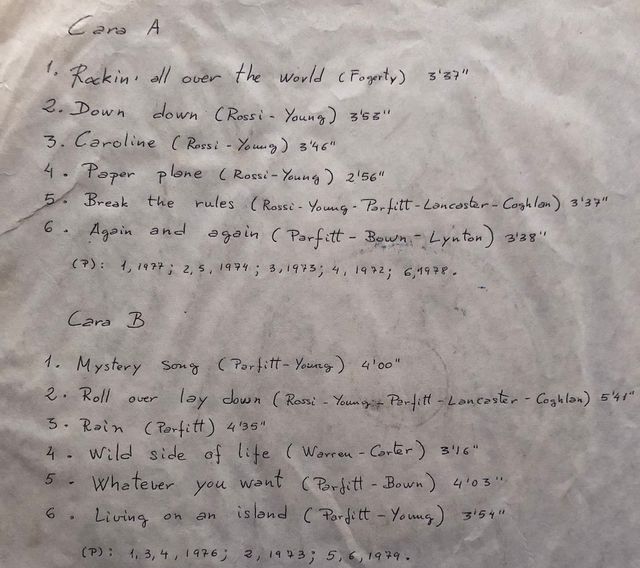 Cara A
1. Rockin' all over the world (Fogerty) 3'37"
2. Down down (Rossi - Young) 3'53"
3. Caroline (Rossi - Young) 3'46"
4. Paper plane (Rossi-Young) 2'56"
5. Break the rules (Rossi - Young - Parfitt - Lancaster - Coghlan) 3'37"
6. Again and again (Parfitt - Bown - Lynton) 3'38"
(P): 1, 1977; 2,5, 1974; 3,1973; 4, 1972; 6,1978.
Cara B
1. Mystery song (Parfitt-Young) 4'00"
2. Roll over lay down (Rossi - Young - Parfitt - Lancaster - Coghlan) 5'41"
3. Rain (Parfitt) 4'35"
4. Wild side of life (Warren - Carter) 3'16"
5. Whatever you want (Parfitt - Bown) 4'03"
6. Living on an island (Parfitt - Young) 3'54"
(P): 1,3,4, 1976; 2, 1973; 5,6, 1979.